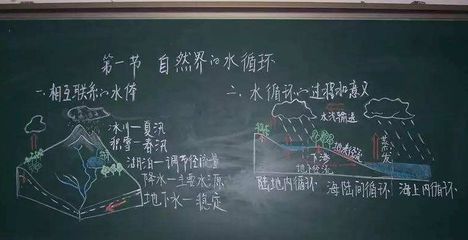 第一节 自然界的水循环
一、相互联系的水体
冰川一夏汛
积雪一春汛
湖泊一调节径流量
降水一主要水源
地下水一稳定
二、水循环的过程和意义
水汽输送
蒸发
地表径流
下渗
地下径流
陆地内循环 海陆间循环 海上内循环